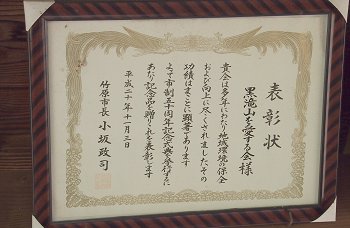 表彰状
黒滝山を愛する会様
貴会は多年にわたり地域環境の保全
および向上に尽くされましたその
功績はまことに顕著であります
よって市制五十周年記念式典を挙行するに
あたり記念品を贈りこれを表彰します
平成二十年十一月三日
竹原市長 小坂政司